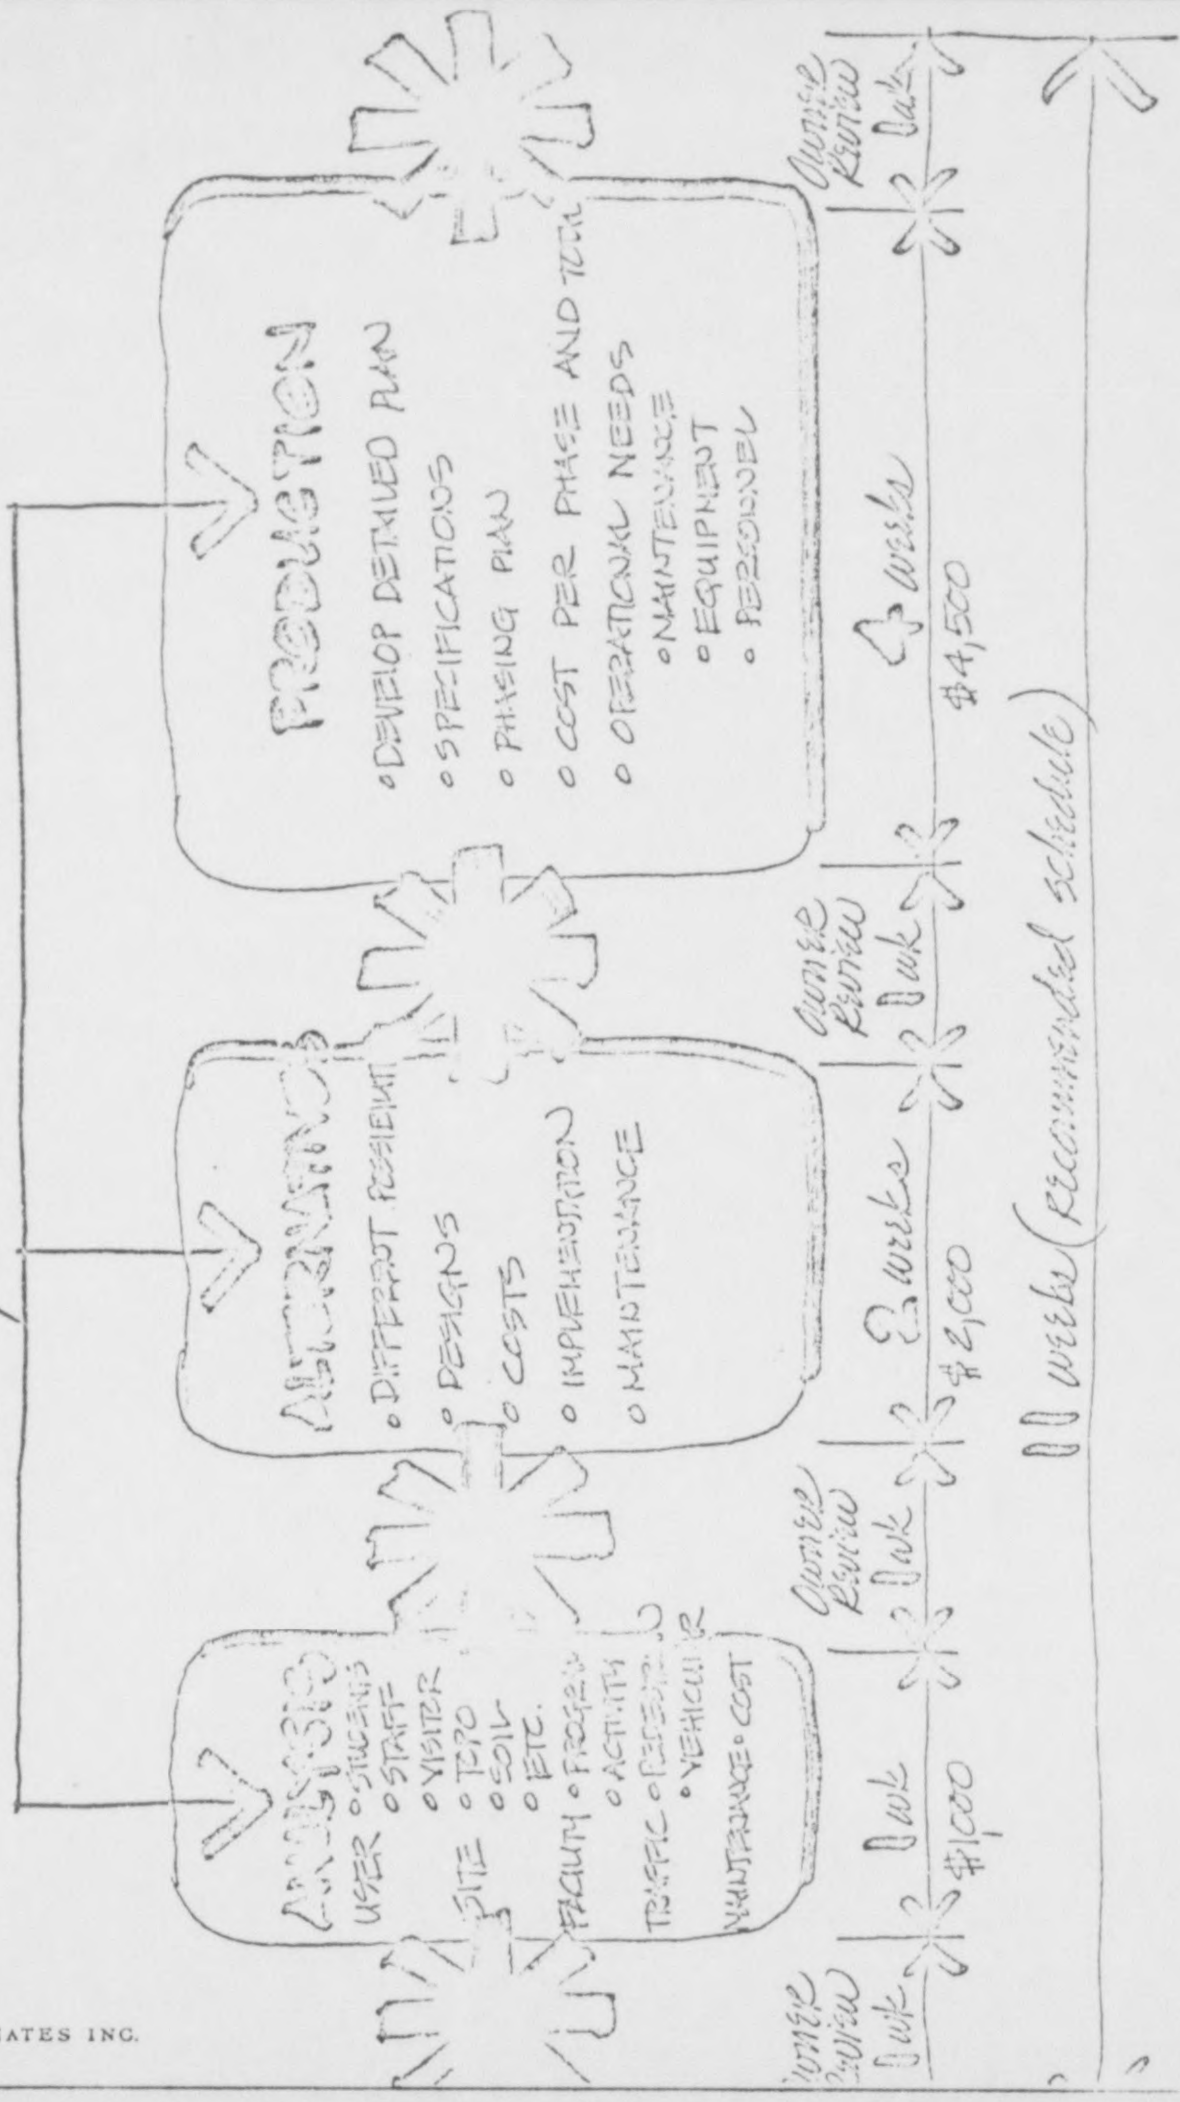 ANALYSIS
USER • STUDENTS
• STAFF
• VISITER
SITE • TOPO
• SOIL
• ETC.
FACILITY • PROGRAM
• ACTIVITY
TRAFFIC • PEDESTRIAN
• VEHICULAR
MAINTENANCE • COST
ALTERNATIVES
• DIFFERENT
• DESIGNS
• COSTS
• IMPLEMENTATION
• MAINTENANCE
PRODUCTION
• DEVELOP DETAILED PLAN
• SPECIFICATIONS
• PHASING PLAN
• COST PER PHASE AND TOTAL
• OPERATIONAL NEEDS
• MAINTENANCE
• EQUIPMENT
• PERSONNEL
Owner
Review
1 wk
1 wk
$1,000
Owner
Review
1 wk
2 weeks
$2,000
Owner
Review
1 wk
4 weeks
$4,500
Owner
Review
1 wk
11 weeks (recommended schedule)
IATES INC.